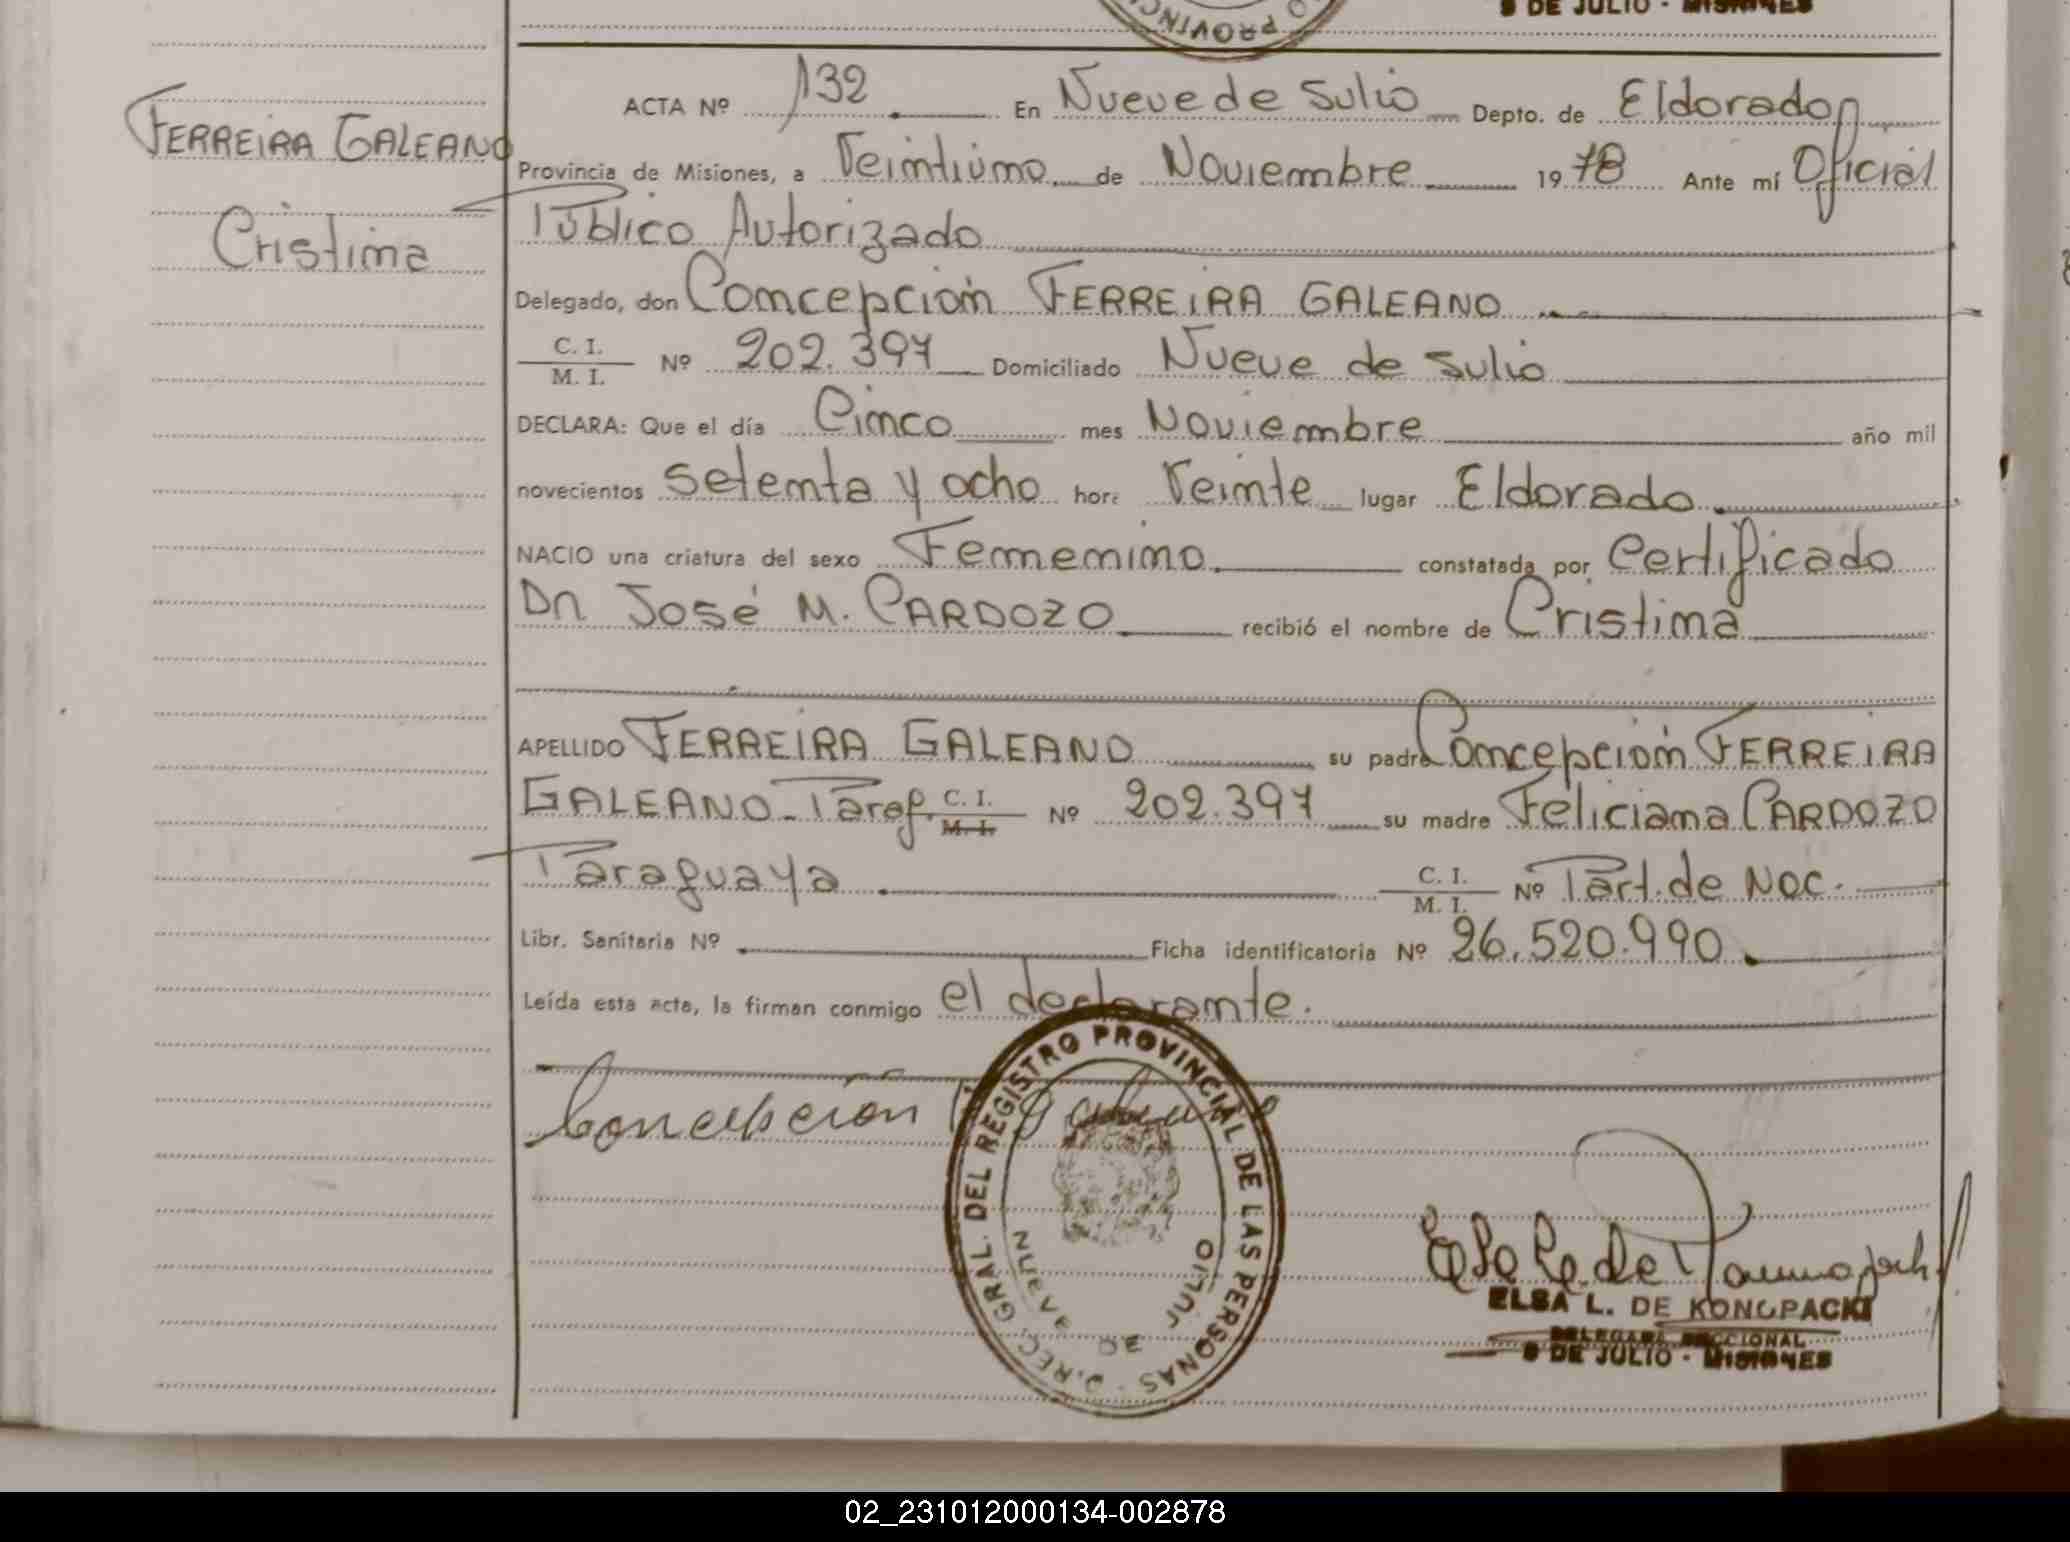 9 DE JULIO - MISIONES
FERREIRA GALEANO
Cristina
ACTA Nº 132 En Nueve de Julio Depto. de Eldorado
Provincia de Misiones, a Veintiuno de Noviembre 1978 Ante mí Oficial
Público Autorizado
Delegado, don Concepción FERREIRA GALEANO
C. I.
M. I. Nº 202.397 Domiciliado Nueve de Julio
DECLARA: Que el día Cinco mes Noviembre año mil
novecientos setenta y ocho hora Veinte lugar Eldorado
NACIO una criatura del sexo Femenino constatada por Certificado
Dn José M. CARDOZO recibió el nombre de Cristina
APELLIDO FERREIRA GALEANO su padre Concepción FERREIRA
GALEANO - Parag. C. I. M. I. Nº 202.397 su madre Feliciana CARDOZO
Paraguaya C. I. M. I. Nº Part. de Nac.
Libr. Sanitaria Nº Ficha identificatoria Nº 26.520.990
Leída esta acta, la firman conmigo el declarante.
Concepción
DIREC. GRAL. DEL REGISTRO PROVINCIAL DE LAS PERSONAS
NUEVE DE JULIO
ELSA L. DE KONOPACKI
DELEGADA SECCIONAL
9 DE JULIO - MISIONES
02_231012000134-002878